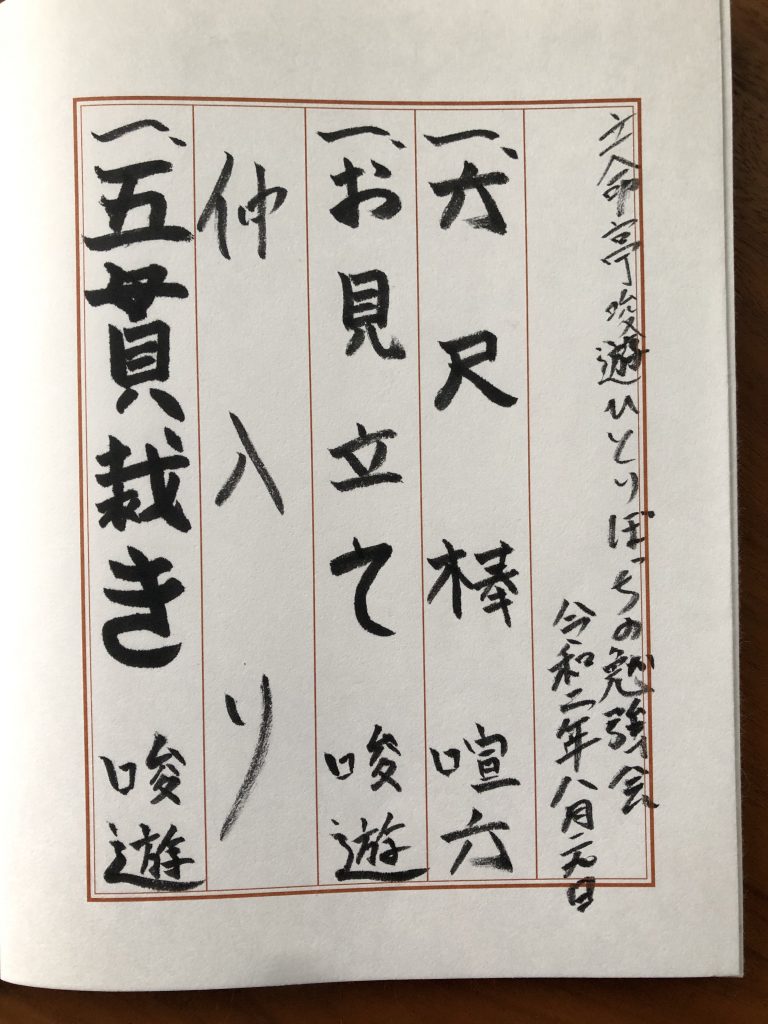 立命亭唆遊ひとりぼっちの勉強会
令和二年八月二九日
一、六尺棒 喧六
一、お見立て 唆遊
仲入り
一、五貫裁き 唆遊